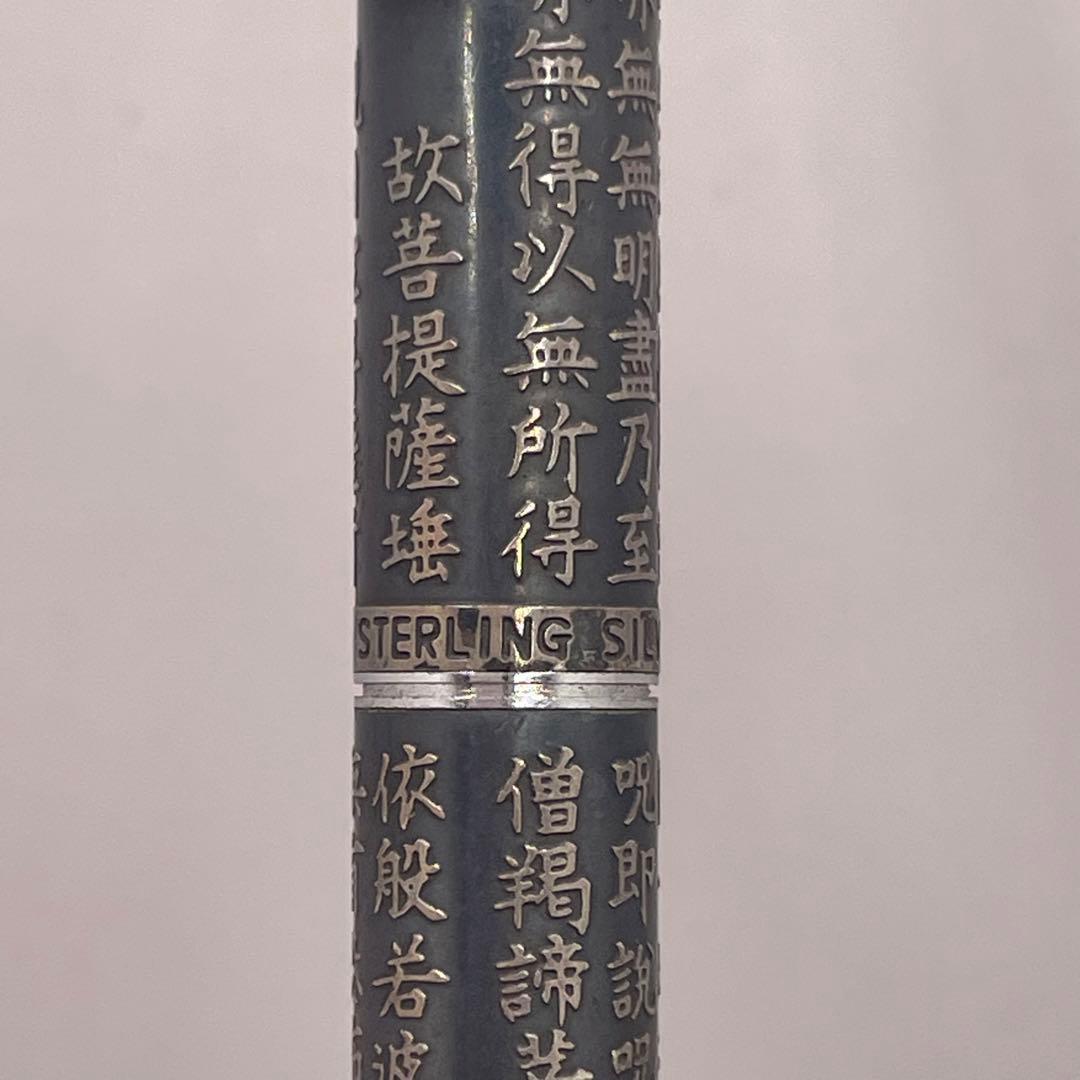 無無明盡乃至
無得以無所得
故菩提薩埵
STERLING SIL
呪即說呪
僧羯諦菩
依般若波